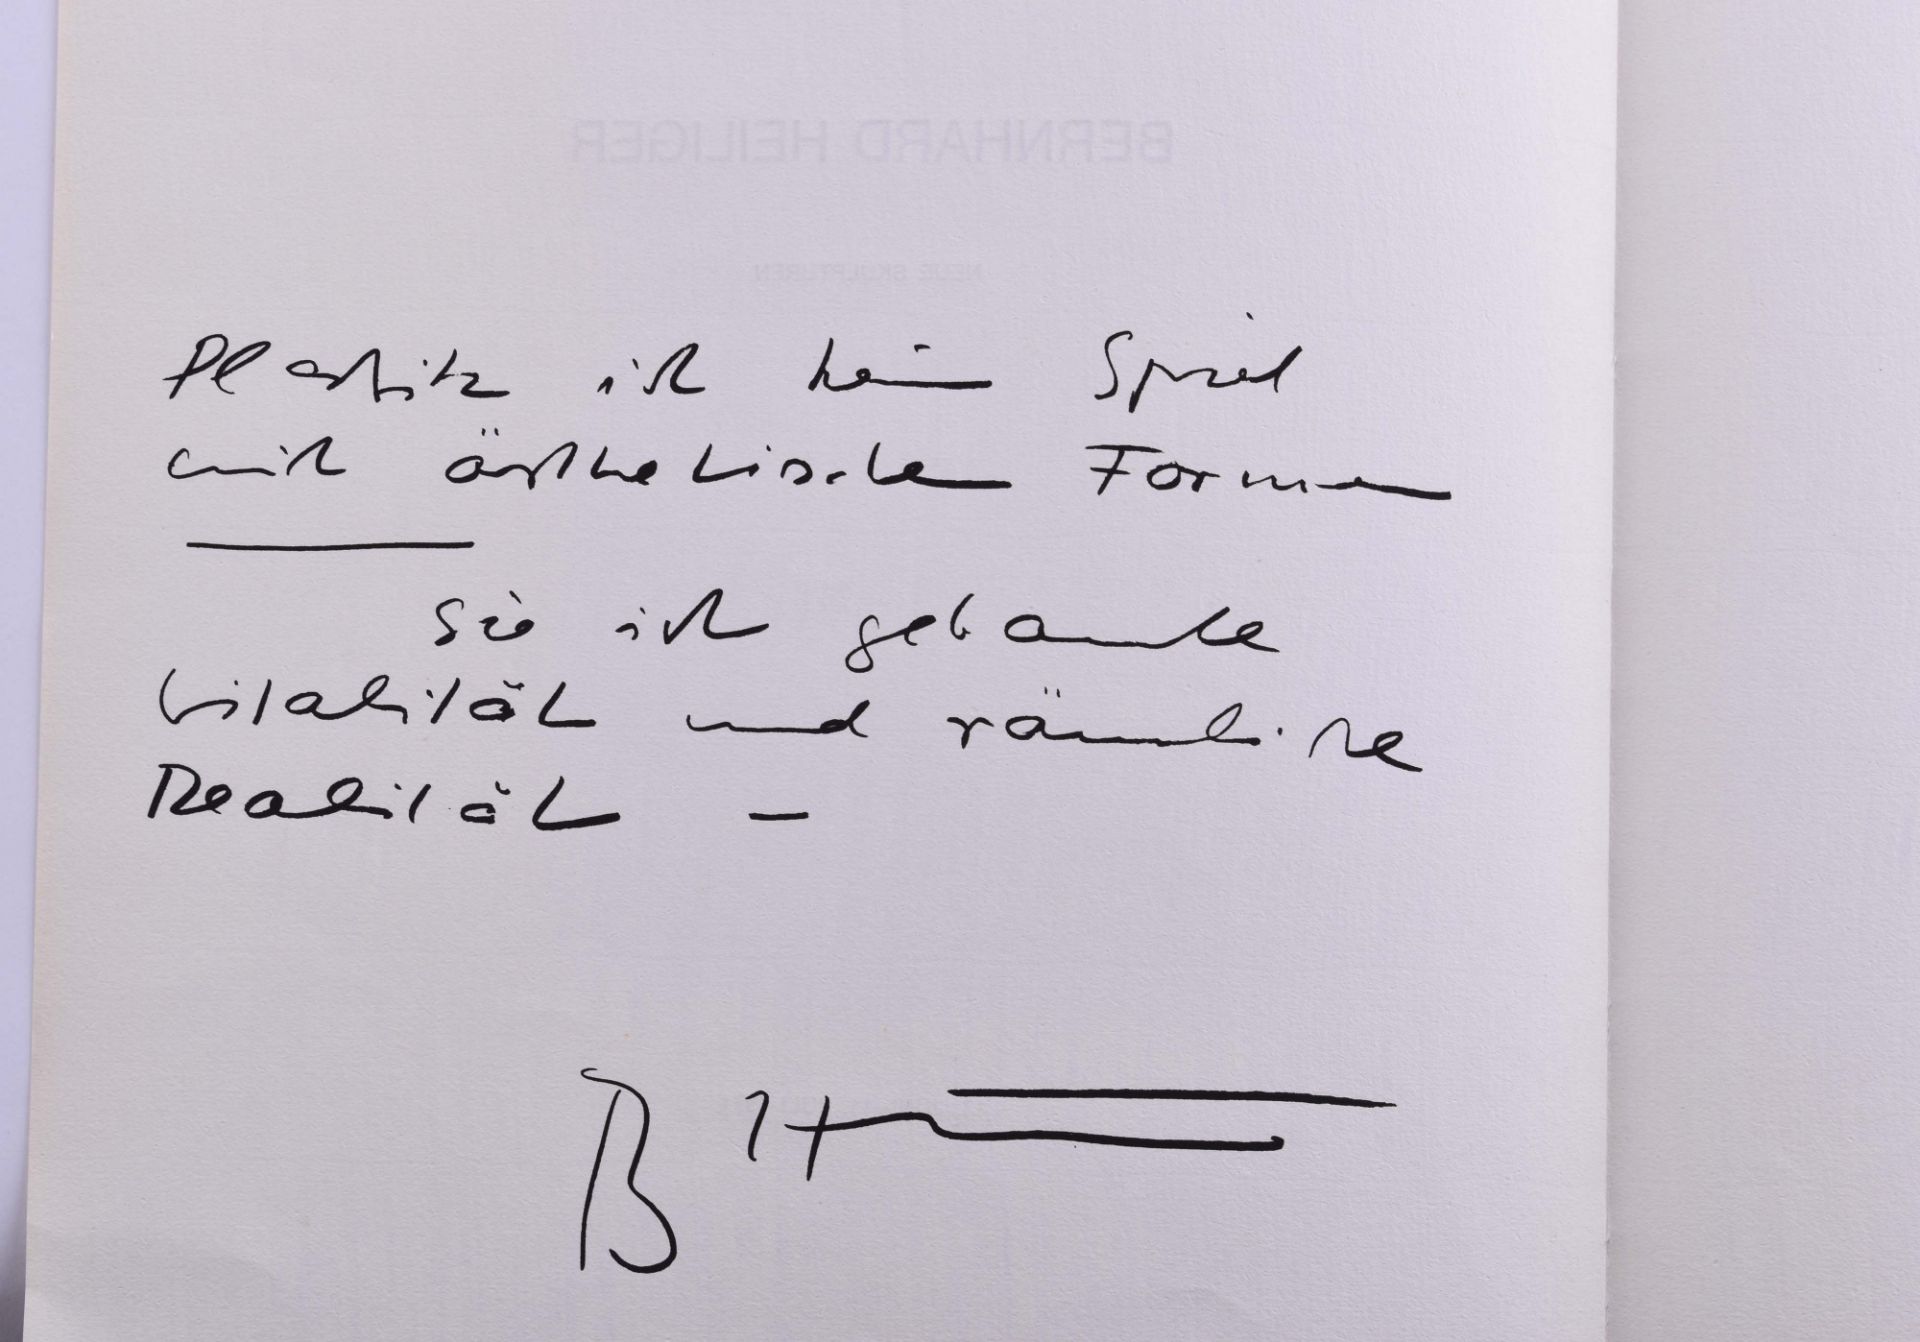 BERNHARD HEILIGER
NEUE SKULPTUREN
Plastik ist kein Spiel
mit ästhetischen Formen
Sie ist gebaute
Vitalität und räumliche
Realität –
B H